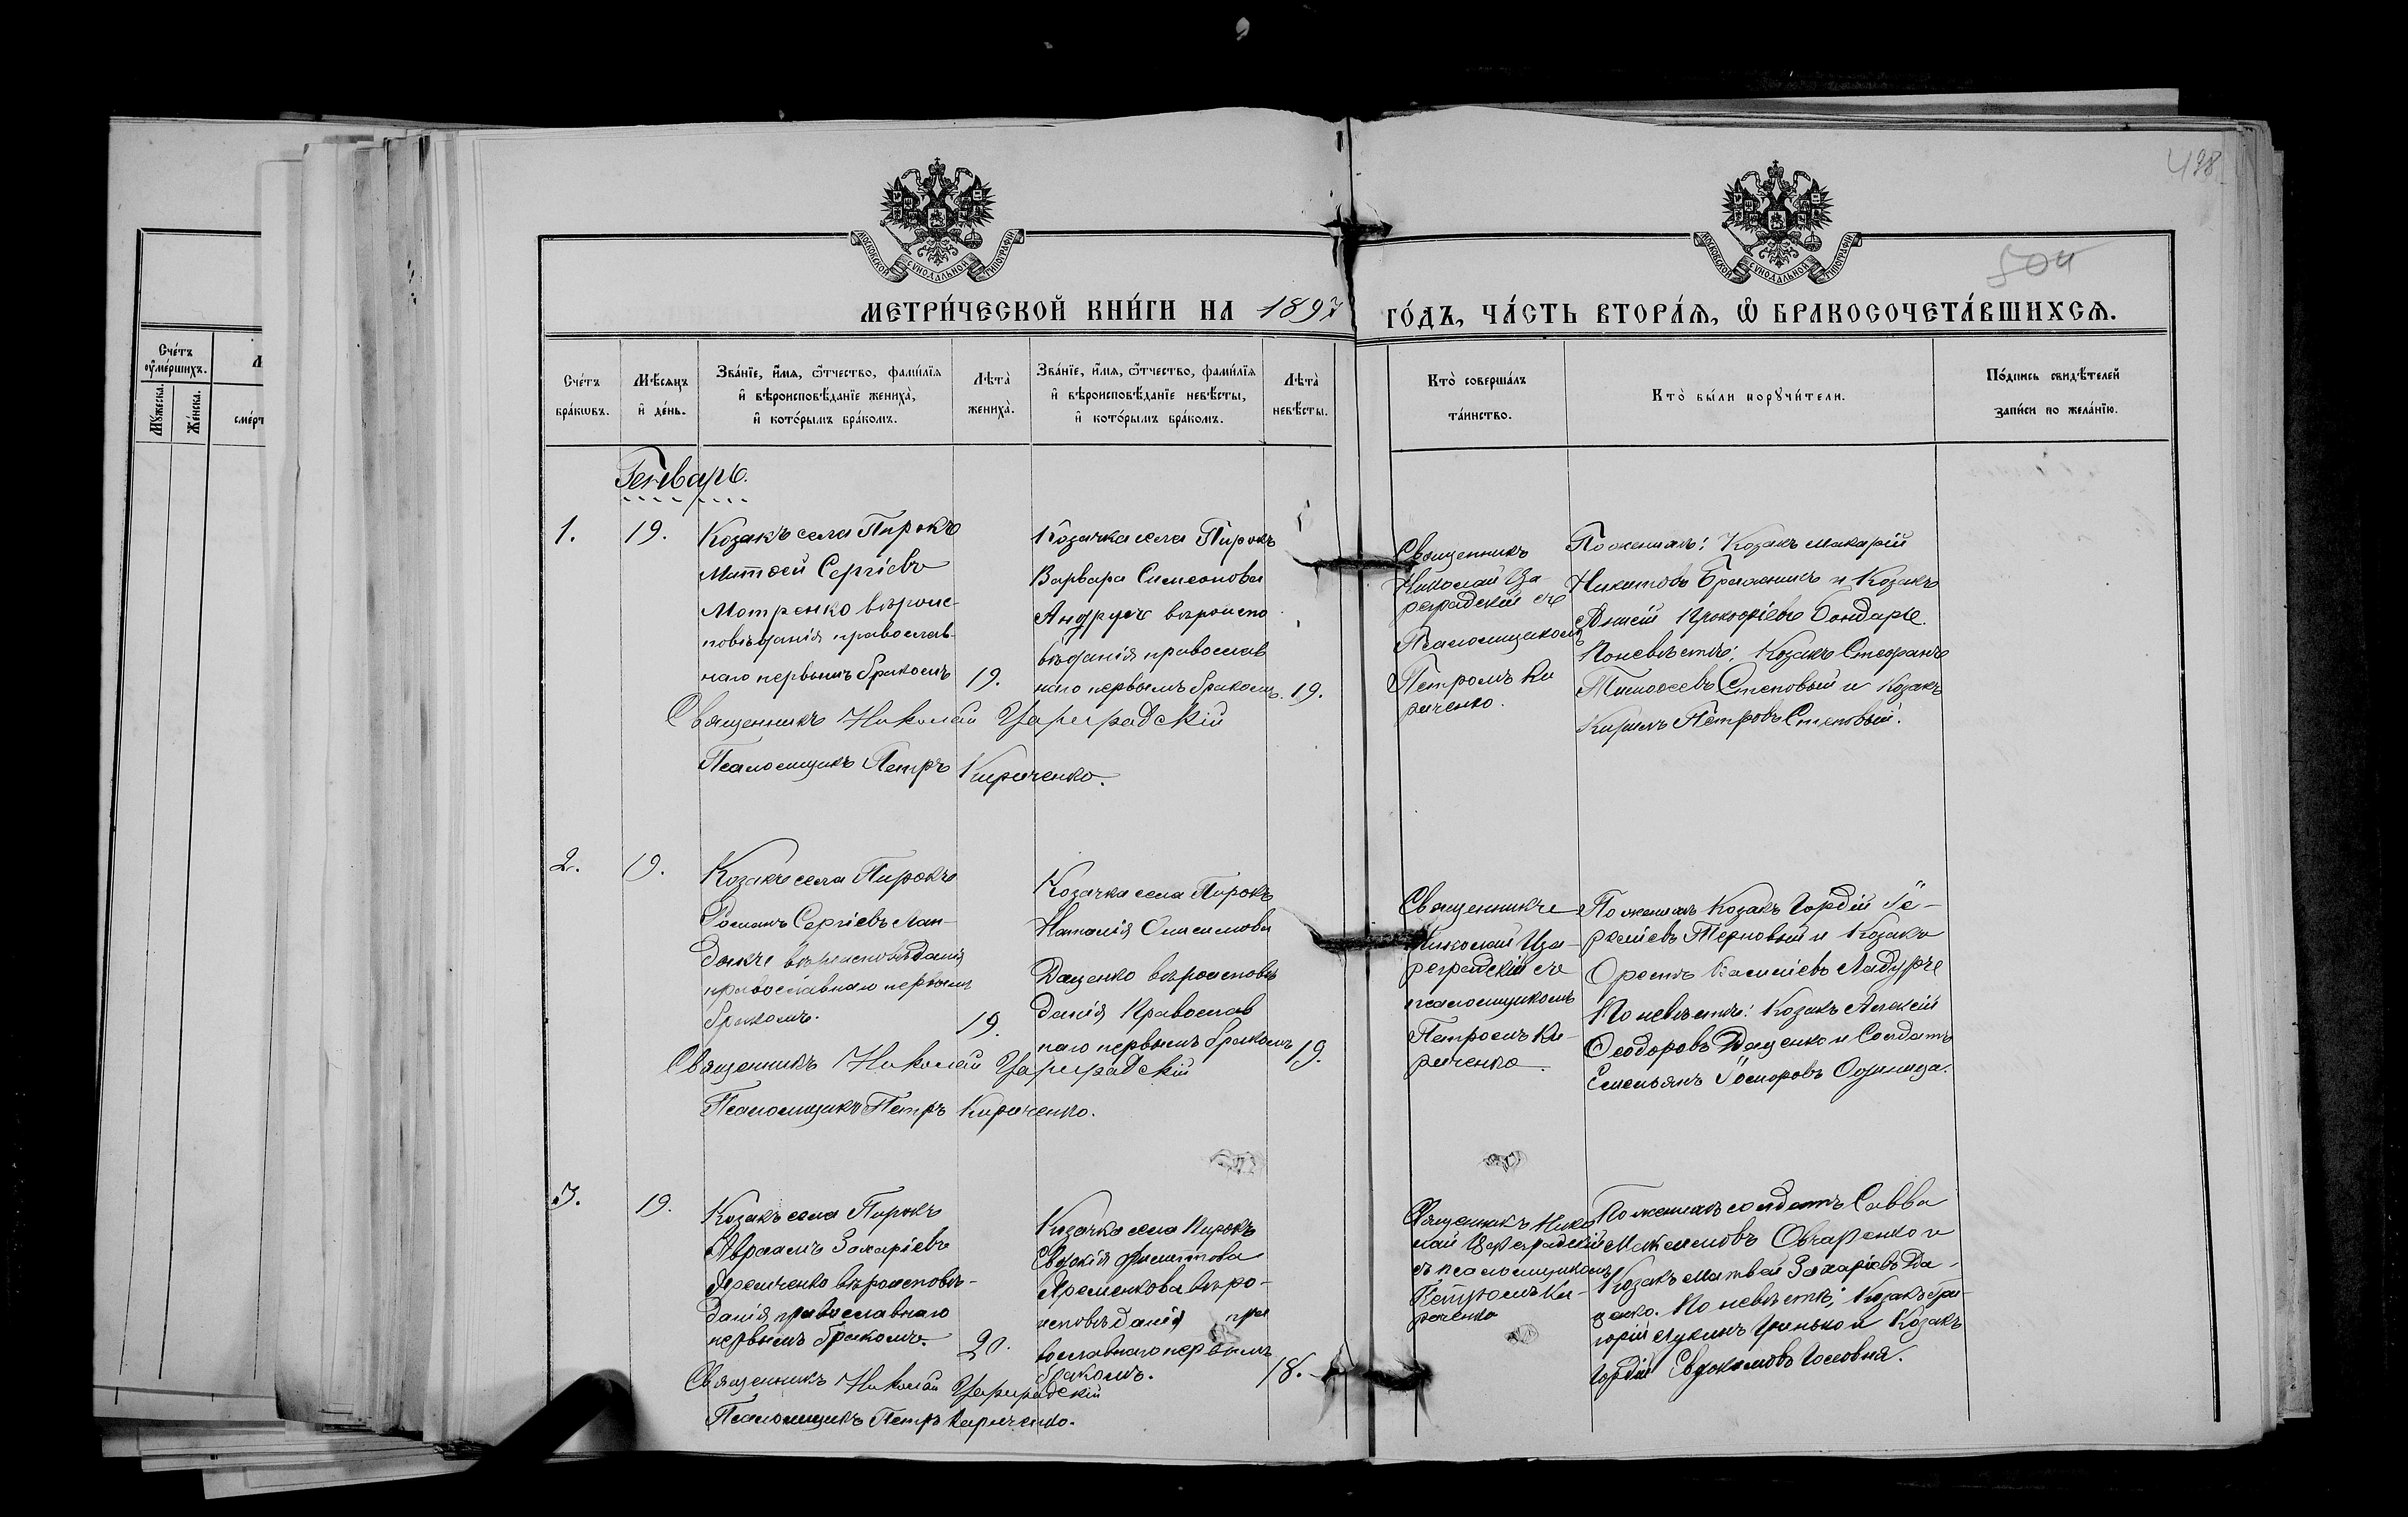 498
504
МОСКОВСКОЙ СѴНОДАЛЬНОЙ ТИПОГРАФІИ
МОСКОВСКОЙ СѴНОДАЛЬНОЙ ТИПОГРАФІИ
МЕТРИ́ЧЕСКОЙ КНИ́ГИ НА 1897 ГО́ДЪ, ЧА́СТЬ ВТОРА́Ѧ, Ѽ БРАКОСОЧЕТА́ВШИХСѦ.
Сче́тъ
оу҆ме́ршихъ.
Мꙋ́жеска.
Же́нска.
сме́рт
Сче́тъ
бра́кѡвъ.
Мѣ́сѧцъ
и҆ де́нь.
Зва́нїе, и҆́мѧ, ѻ҆́тчество, фами́лїѧ
и҆ вѣроисповѣ́данїе жениха̀,
и҆ кото́рымъ бра́комъ.
Лѣта̀
жениха̀.
Зва́нїе, и҆́мѧ, ѻ҆́тчество, фами́лїѧ
и҆ вѣроисповѣ́данїе невѣ́сты,
и҆ кото́рымъ бра́комъ.
Лѣта̀
невѣ́сты.
Кто̀ соверша́лъ
та́инство.
Кто̀ бы́ли порꙋчи́тели.
По́дпись свидѣ́телей
за́писи по жела́нїю.
Генварь.
1.
19.
Козакъ села Пирокъ
Матѳей Сергіевъ
Мотренко вѣроис-
повѣданія православ-
наго первымъ бракомъ
19.
Козачка села Пирокъ
Варвара Симеонова
Андрущ вѣроиспо
вѣданія православ
наго первымъ бракомъ
19.
Священникъ
Николай Ца-
реградскій съ
Псаломщикомъ
Петромъ Ки
риченко.
По женихѣ: Козакъ Макарій
Никитовъ Бражникъ и Козакъ
Прокофіевъ Бондарь.
По невѣстѣ: Козакъ Стефанъ
Тимоѳеевъ Степовый и Козакъ
Кирилъ Петровъ Степовый.
Священникъ Николай Цареградскій
Псаломщикъ Петръ Кириченко.
2.
19.
Козакъ села Пирокъ
Романъ Сергіевъ Лан-
вѣроисповѣданія
православнаго первымъ
бракомъ.
19.
Козачка села Пирокъ
Наталія Онисимова
Даценко вѣроисповѣ
данія Православ
наго первымъ бракомъ
19.
Священникъ
Николай Ца-
реградскій съ
псаломщикомъ
Петромъ Ки-
риченко.
По женихѣ Козакъ Гордій
Терновый и Козакъ
Орестъ Василіевъ Ладуръ
По невѣстѣ: Козакъ Алексій
Ѳеодоровъ Даценко и Солдатъ
Емельянъ Одиница.
Священникъ Николай Цареградскій
Псаломщикъ Петръ Кириченко.
3.
19.
Козакъ села Пирокъ
Авраамъ Захаріевъ
Яремченко вѣроисповѣ-
данія православнаго
первымъ бракомъ.
20.
Козачка села Пирокъ
Евдокія Филиппова
Яременкова вѣро-
исповѣданія пра
вославнаго первымъ
бракомъ.
18.
Священникъ Нико
лай Цареградскій
съ псаломщикомъ
Петромъ Ки-
риченко
По женихѣ солдатъ Савва
Максимовъ Овчаренко и
Козакъ Матвей Захаріевъ Да-
ценко. По невѣстѣ: Козакъ Гри-
горій Лукинъ Гринько и Козакъ
Гордій Евдокимовъ Головня.
Священникъ Николай Цареградскій
Псаломщикъ Петръ Кириченко.